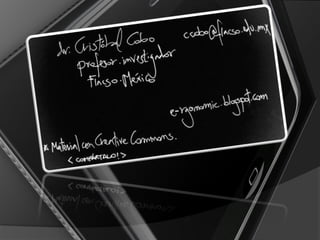 Dr. Cristóbal Cobo
ccobo@flacso.edu.mx
profesor-investigador
Flacso-México
e-rgonomic.blogspot.com
* Material con Creative Commons.